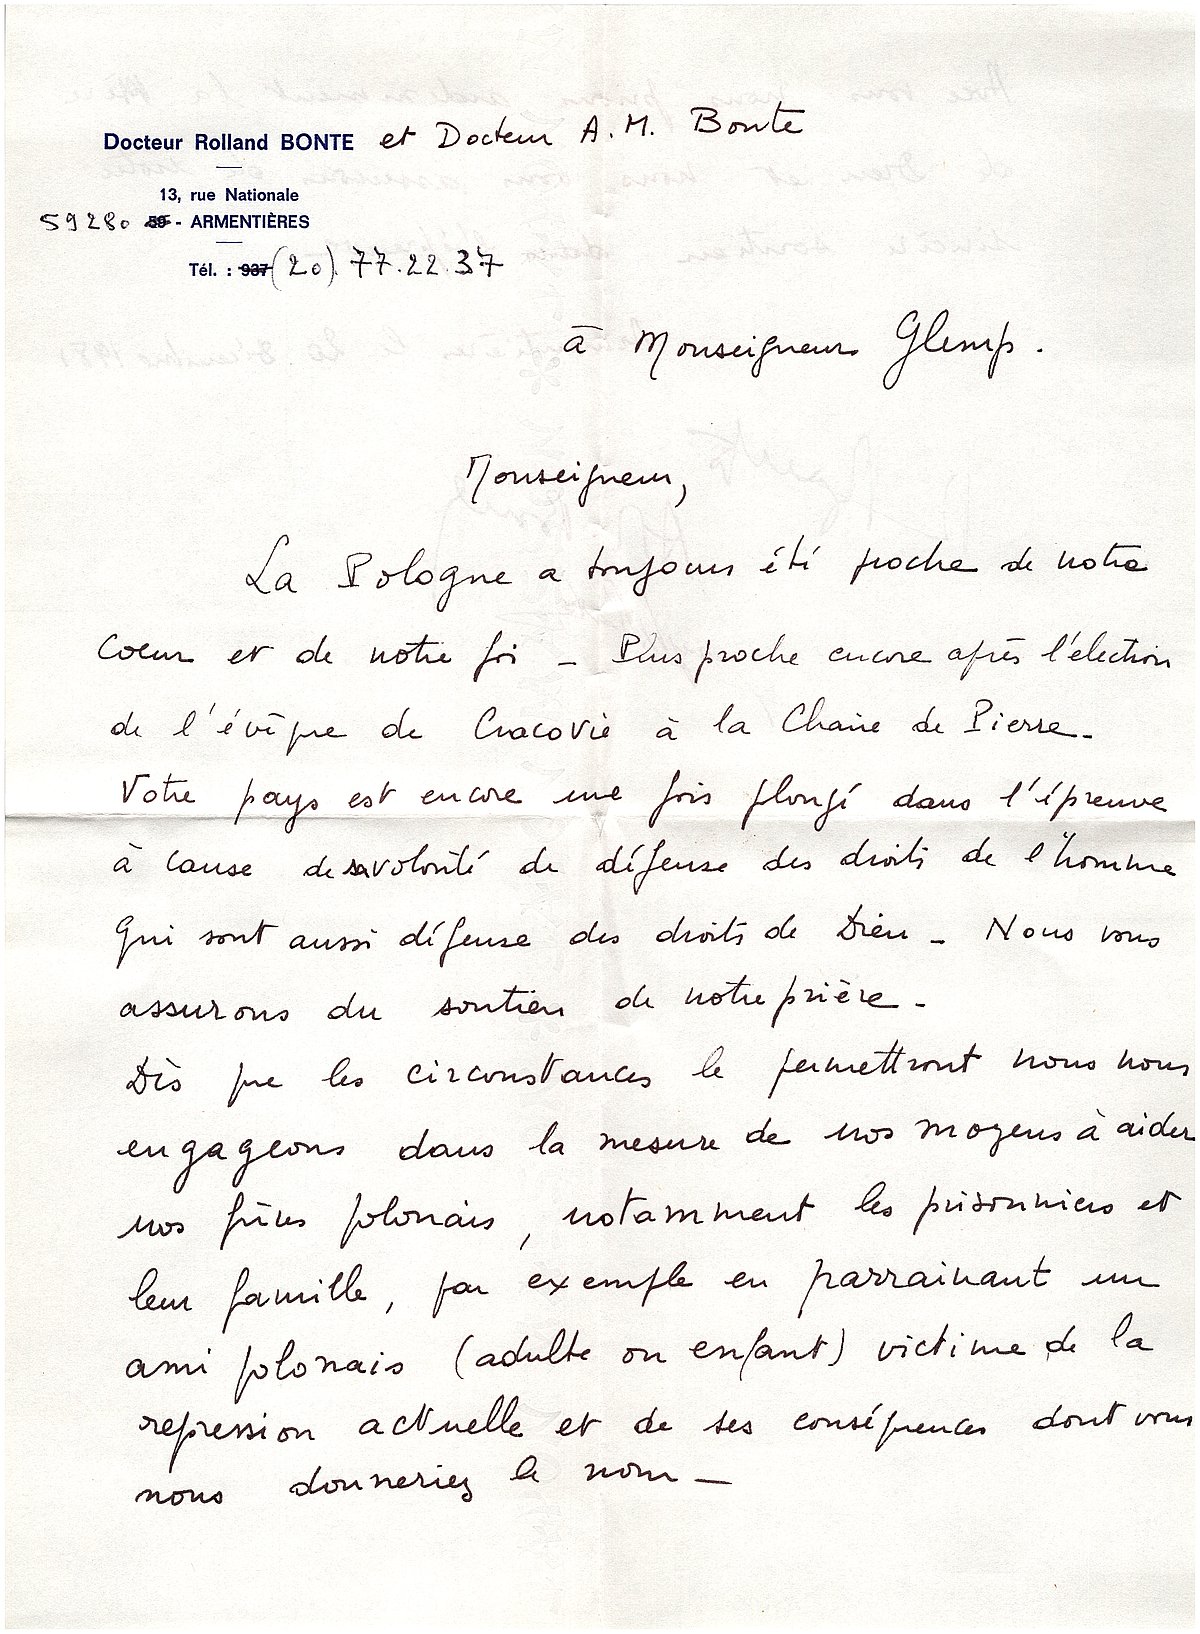 Docteur Rolland BONTE et Docteur A.M. Bonte
13, rue Nationale
59280 59 - ARMENTIÈRES
Tél. : 937 (20). 77.22.37
à Monseigneur Glemp.
Monseigneur,
La Pologne a toujours été proche de notre
coeur et de notre foi - Plus proche encore après l'élection
de l'évêque de Cracovie à la Chaire de Pierre -
Votre pays est encore une fois plongé dans l'épreuve
à cause de sa volonté de défense des droits de l'homme
qui sont aussi défense des droits de Dieu - Nous vous
assurons du soutien de notre prière -
Dès que les circonstances le permettront nous nous
engageons dans la mesure de nos moyens à aider
nos frères polonais, notamment les prisonniers et
leur famille, par exemple en parrainant un
ami polonais (adulte ou enfant) victime de la
repression actuelle et de ses conséquences dont vous
nous donneriez le nom -